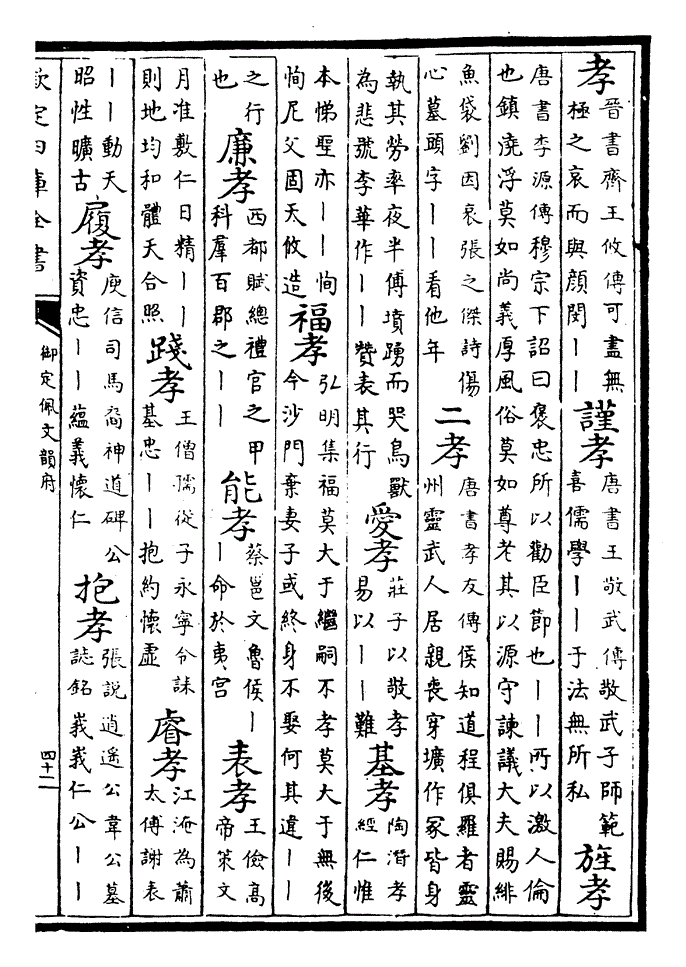 孝
晉書齊王攸傳可盡無
極之哀而與顏閔丨丨
謹孝
唐書王敬武傳敬武子師範
喜儒學丨丨于法無所私
旌孝
唐書李源傳穆宗下詔曰褒忠所以勸臣節也丨丨所以激人倫
也鎮澆浮莫如尚義厚風俗莫如尊老其以源守諫議大夫賜緋
魚袋劉因哀張之傑詩傷
心墓頭字丨丨看他年
二孝
唐書孝友傳侯知道程俱羅者靈
州靈武人居親喪穿壙作冢皆身
執其勞率夜半傅墳踴而哭鳥獸
為悲號李華作丨丨贊表其行
愛孝
莊子以敬孝
易以丨丨難
基孝
陶潛孝
經仁惟
本悌聖亦丨丨恂
恂尼父固天攸造
福孝
弘明集福莫大于繼嗣不孝莫大于無後
今沙門棄妻子或終身不娶何其違丨丨
之行
也
廉孝
西都賦總禮官之甲
科羣百郡之丨丨
能孝
蔡邕文魯侯丨
丨命於夷宫
表孝
王儉高
帝策文
月准敷仁日精丨丨
則地均和體天合照
踐孝
王僧孺從子永寧令誄
基忠丨丨抱約懷虚
睿孝
江淹為蕭
太傅謝表
丨丨動天
昭性曠古
履孝
庾信司馬裔神道碑公
資忠丨丨蘊義懷仁
抱孝
張説逍遥公韋公墓
誌銘峩峩仁公丨丨
欽定四庫全書
御定佩文韻府
四十二